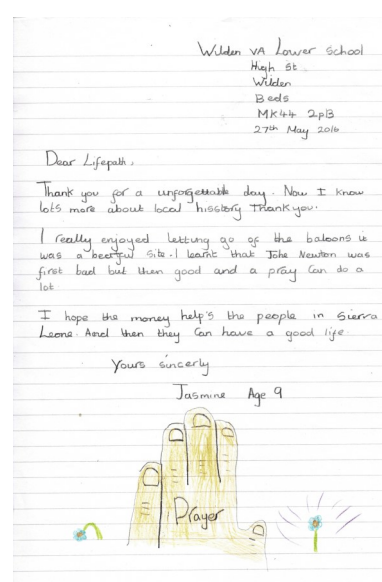 Wilden VA Lower School
High St
Wilden
Beds
MK44 2pB
27th May 2016
Dear Lifepath,
Thank you for a unforgettable day. Now I know
lots more about local hisstory Thankyou.
I really enjoyed letting go of the baloons it
was a site. I learnt that John Newton was
first bad but then good and a pray can do a
lot
I hope the money help's the people in Sierra
Leone. And then they can have a good life
Yours sincerly
Jasmine Age 9
Prayer